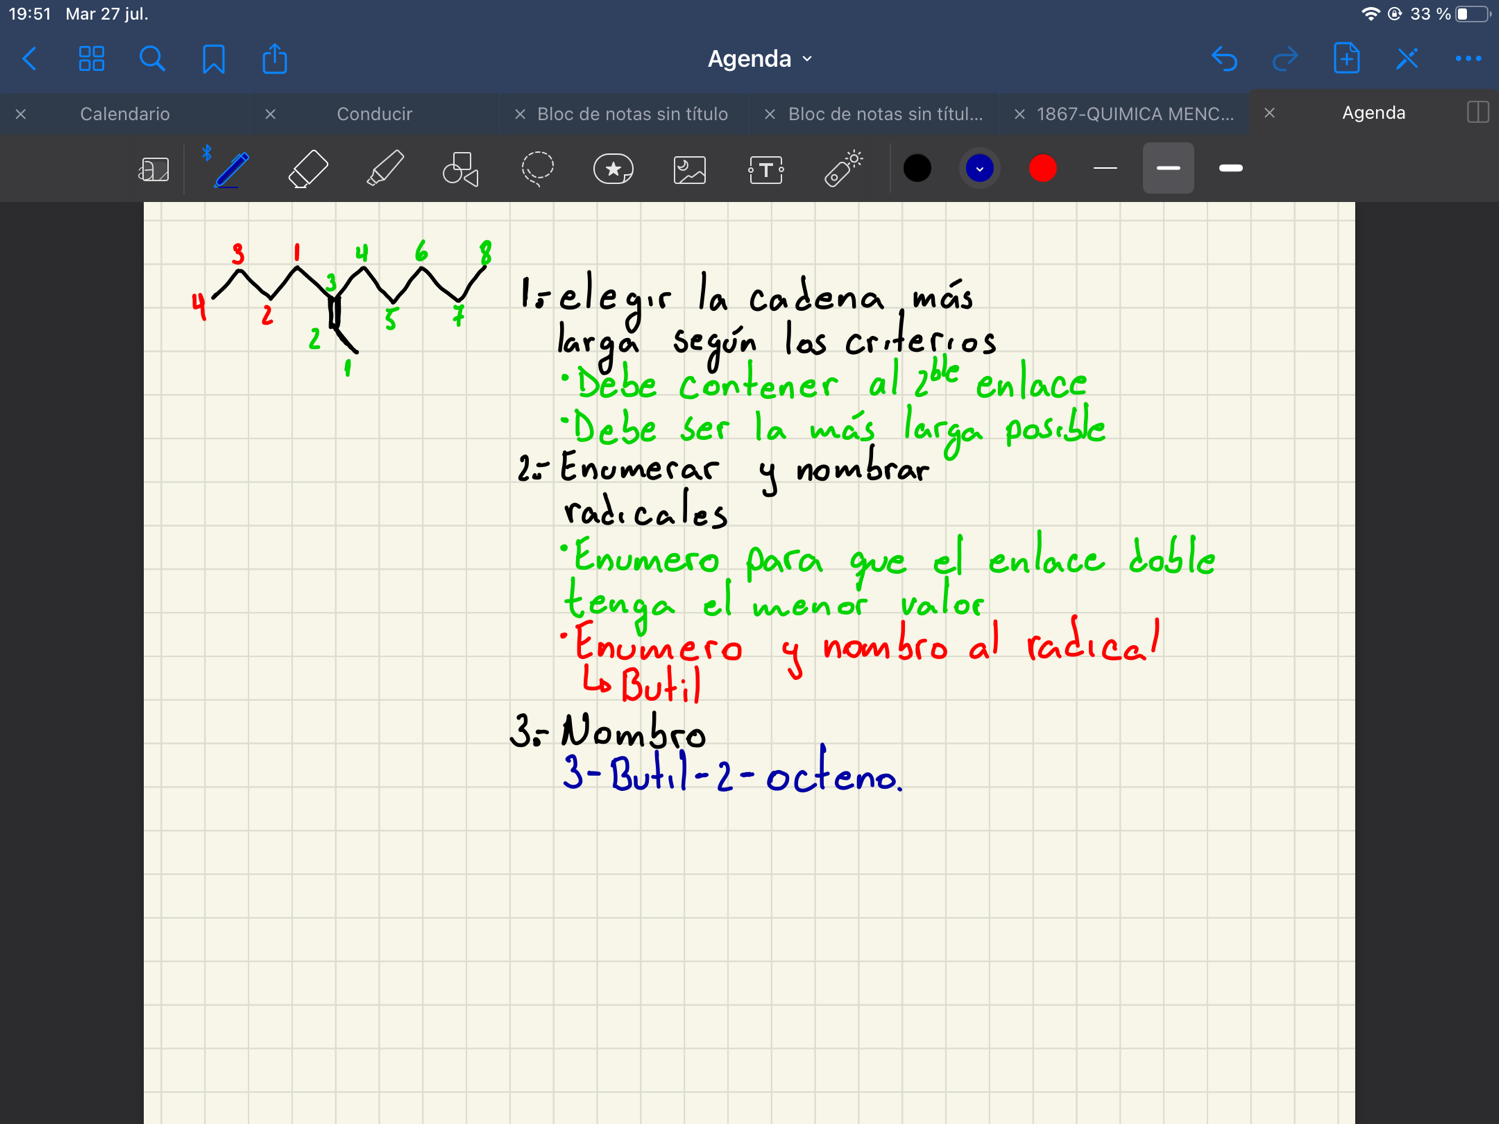 19:51 Mar 27 jul.
33 %
Agenda
Calendario
Conducir
Bloc de notas sin título
Bloc de notas sin títul...
1867-QUIMICA MENC...
Agenda
T
3 1 4 6 8
4 2 3 5 7
2
1
1.- elegir la cadena más
larga según los criterios
• Debe contener al 2ble enlace
• Debe ser la más larga posible
2.- Enumerar y nombrar
radicales
• Enumero para que el enlace doble
tenga el menor valor
• Enumero y nombro al radical
↳ Butil
3.- Nombro
3-Butil-2-octeno.